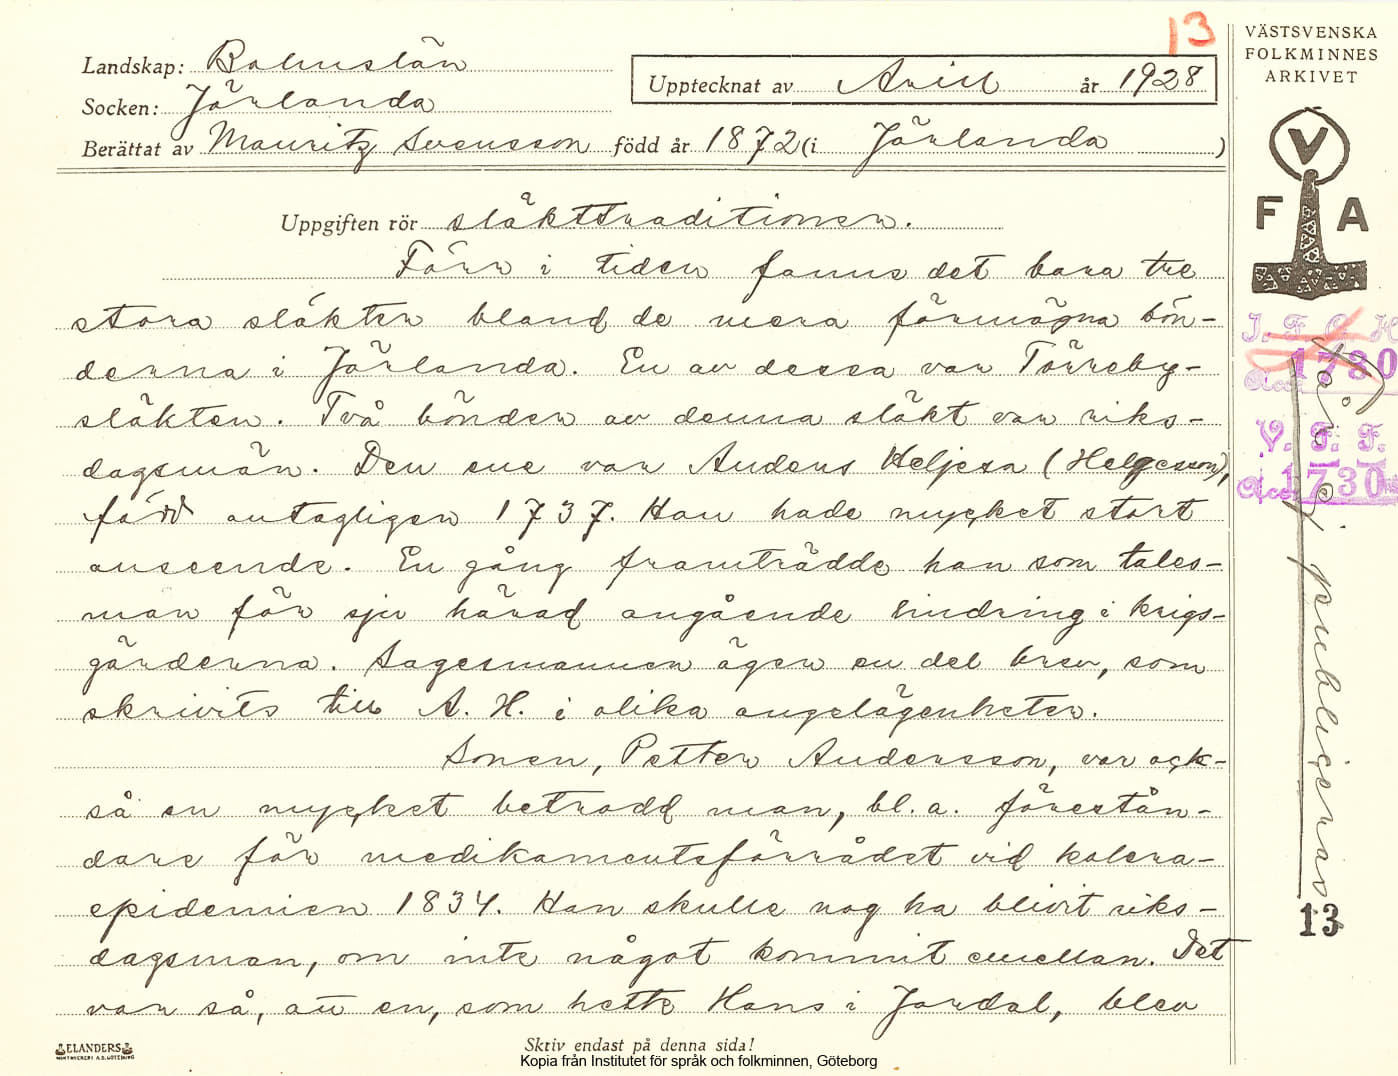 13
VÄSTSVENSKA
FOLKMINNES
ARKIVET
Landskap: Bohuslän
Upptecknat av Arill år 1928
Socken: Jörlanda
Berättat av Mauritz Svensson född år 1872 (i Jörlanda )
V
F A
Uppgiften rör släkttraditioner.
Förr i tiden fanns det bara tre
stora släkter bland de mera förmögna bön-
derna i Jörlanda. En av dessa var Törreby-
släkten. Två bönder av denna släkt var riks-
dagsmän. Den ene var Anders Heljesa (Helgesson),
född antagligen 1737. Han hade mycket stort
anseende. En gång framträdde han som tales-
man för sju härad angående lindring i krigs-
gärderna. Sagesmannen äger en del brev, som
skrivits till A. H. i olika angelägenheter.
Sonen, Petter Andersson, var ock-
så en mycket betrodd man, bl. a. förestån-
dare för medikamentsförrådet vid kolera-
epidemien 1834. Han skulle nog ha blivit riks-
dagsman, om inte något kommit emellan. Det
var så, att en, som hette Hans i Jordal, blev
I. F. G. H.
Acc. 1730
V. F. F.
Acc. 1730
får ej publiceras
13
ELANDERS
Skriv endast på denna sida!
Kopia från Institutet för språk och folkminnen, Göteborg